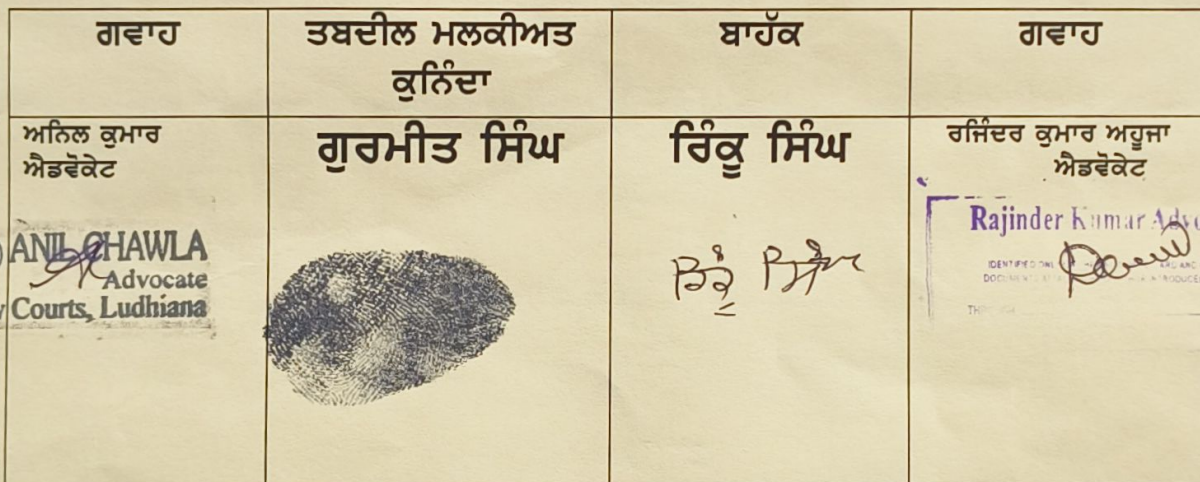 ਗਵਾਹ
ਤਬਦੀਲ ਮਲਕੀਅਤ
ਕੁਨਿੰਦਾ
ਬਾਹੱਕ
ਗਵਾਹ
ਅਨਿਲ ਕੁਮਾਰ
ਐਡਵੋਕੇਟ
ANIL CHAWLA
Advocate
Courts, Ludhiana
ਗੁਰਮੀਤ ਸਿੰਘ
ਰਿੰਕੂ ਸਿੰਘ
ਰਿੰਕੂ ਸਿੰਘ
ਰਜਿੰਦਰ ਕੁਮਾਰ ਅਹੂਜਾ
ਐਡਵੋਕੇਟ
Rajinder Kumar Advo